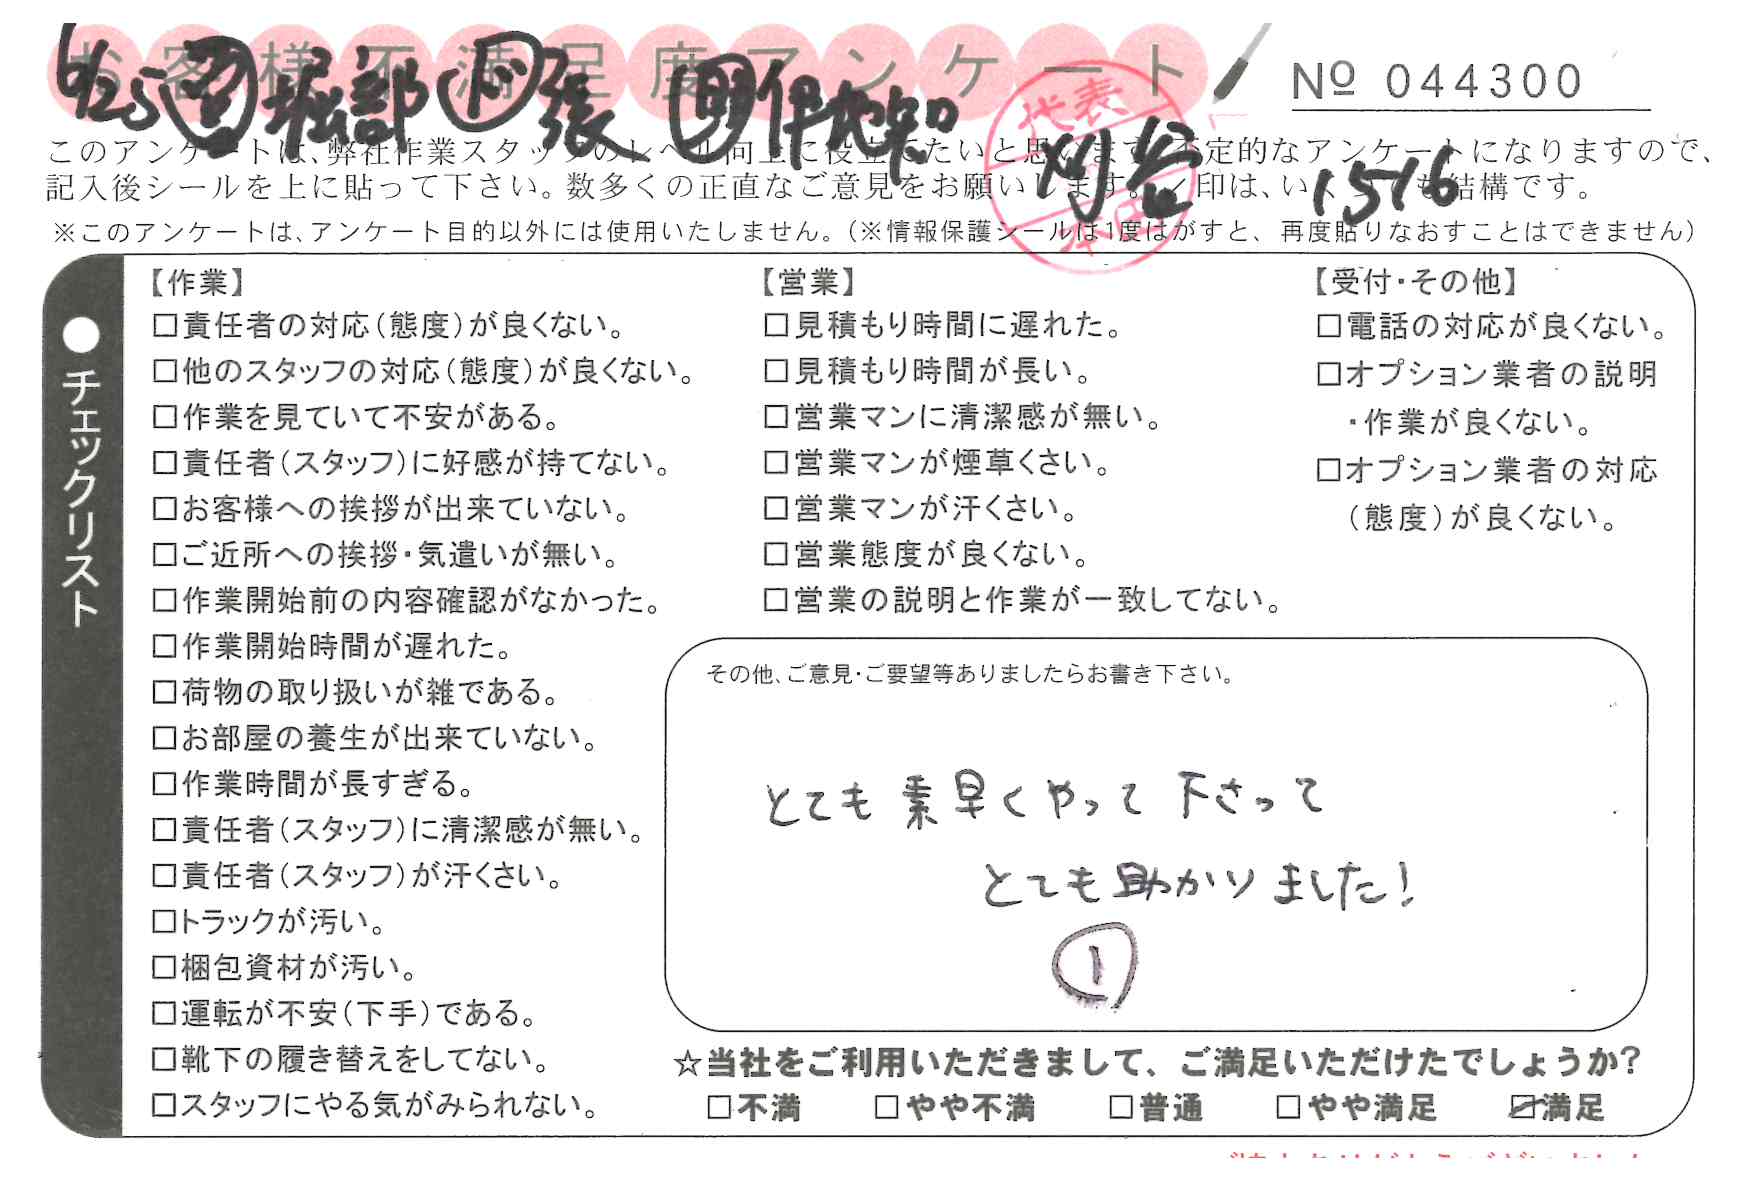 お客様不満足度アンケート
Nº 044300
6/25 堀部 張 伊地知
代表
河合
本田
1516
このアンケートは、弊社作業スタッフのレベル向上に役立てたいと思います。否定的なアンケートになりますので、
記入後シールを上に貼って下さい。数多くの正直なご意見をお願いします。✓印は、いくつでも結構です。
※このアンケートは、アンケート目的以外には使用いたしません。(※情報保護シールは1度はがすと、再度貼りなおすことはできません)
●チェックリスト
【作業】
□責任者の対応(態度)が良くない。
□他のスタッフの対応(態度)が良くない。
□作業を見ていて不安がある。
□責任者(スタッフ)に好感が持てない。
□お客様への挨拶が出来ていない。
□ご近所への挨拶・気遣いが無い。
□作業開始前の内容確認がなかった。
□作業開始時間が遅れた。
□荷物の取り扱いが雑である。
□お部屋の養生が出来ていない。
□作業時間が長すぎる。
□責任者(スタッフ)に清潔感が無い。
□責任者(スタッフ)が汗くさい。
□トラックが汚い。
□梱包資材が汚い。
□運転が不安(下手)である。
□靴下の履き替えをしてない。
□スタッフにやる気がみられない。
【営業】
□見積もり時間に遅れた。
□見積もり時間が長い。
□営業マンに清潔感が無い。
□営業マンが煙草くさい。
□営業マンが汗くさい。
□営業態度が良くない。
□営業の説明と作業が一致してない。
【受付・その他】
□電話の対応が良くない。
□オプション業者の説明
・作業が良くない。
□オプション業者の対応
(態度)が良くない。
その他、ご意見・ご要望等ありましたらお書き下さい。
とても素早くやって下さって
とても助かりました!
①
☆当社をご利用いただきまして、ご満足いただけたでしょうか?
□不満 □やや不満 □普通 □やや満足 ☑満足